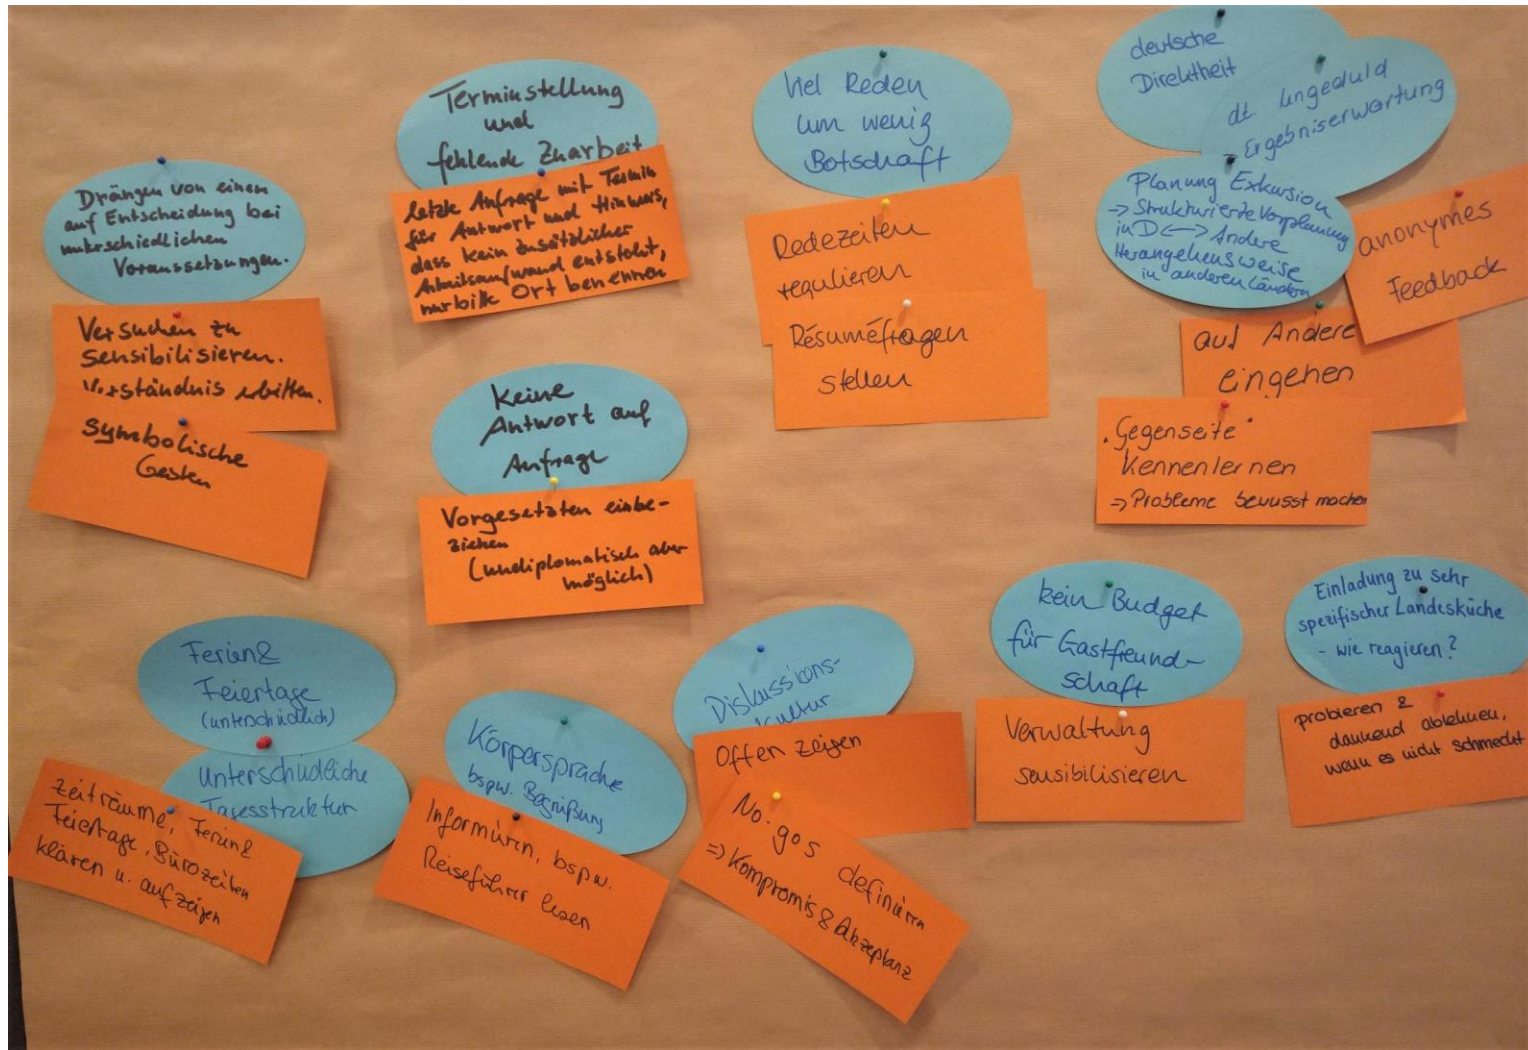 Drängen von einem
auf Entscheidung bei
unterschiedlichen
Voraussetzungen.
Versuchen zu
sensibilisieren.
Verständnis erbitten.
Symbolische
Gesten
Terminstellung
und
fehlende Zuarbeit
letzte Anfrage mit Termin
für Antwort und Hinweis,
dass kein zusätzlicher
Arbeitsaufwand entsteht,
nur bitte Ort benennen
Keine
Antwort auf
Anfrage
Vorgesetzten einbe-
ziehen
(undiplomatisch aber
möglich)
Viel Reden
um wenig
Botschaft
Redezeiten
regulieren
Résuméfragen
stellen
deutsche
Direktheit
dt. Ungeduld
Ergebniserwartung
Planung Exkursion
=> Strukturierte Vorplanung
in D <-> Andere
Herangehensweise
in anderen Ländern
anonymes
Feedback
auf Andere
eingehen
"Gegenseite"
kennenlernen
=> Probleme bewusst machen
Ferien &
Feiertage
(unterschiedlich)
unterschiedliche
Tagesstruktur
Zeiträume, Ferien &
Feiertage, Bürozeiten
klären u. aufzeigen
Körpersprache
bspw. Begrüßung
Informieren, bspw.
Reiseführer lesen
Diskussions-
kultur
Offen zeigen
No-gos definieren
=> Kompromis & Akzeptanz
kein Budget
für Gastfreund-
schaft
Verwaltung
sensibilisieren
Einladung zu sehr
spezifischer Landesküche
- wie reagieren?
probieren &
dankend ablehnen,
wenn es nicht schmeckt